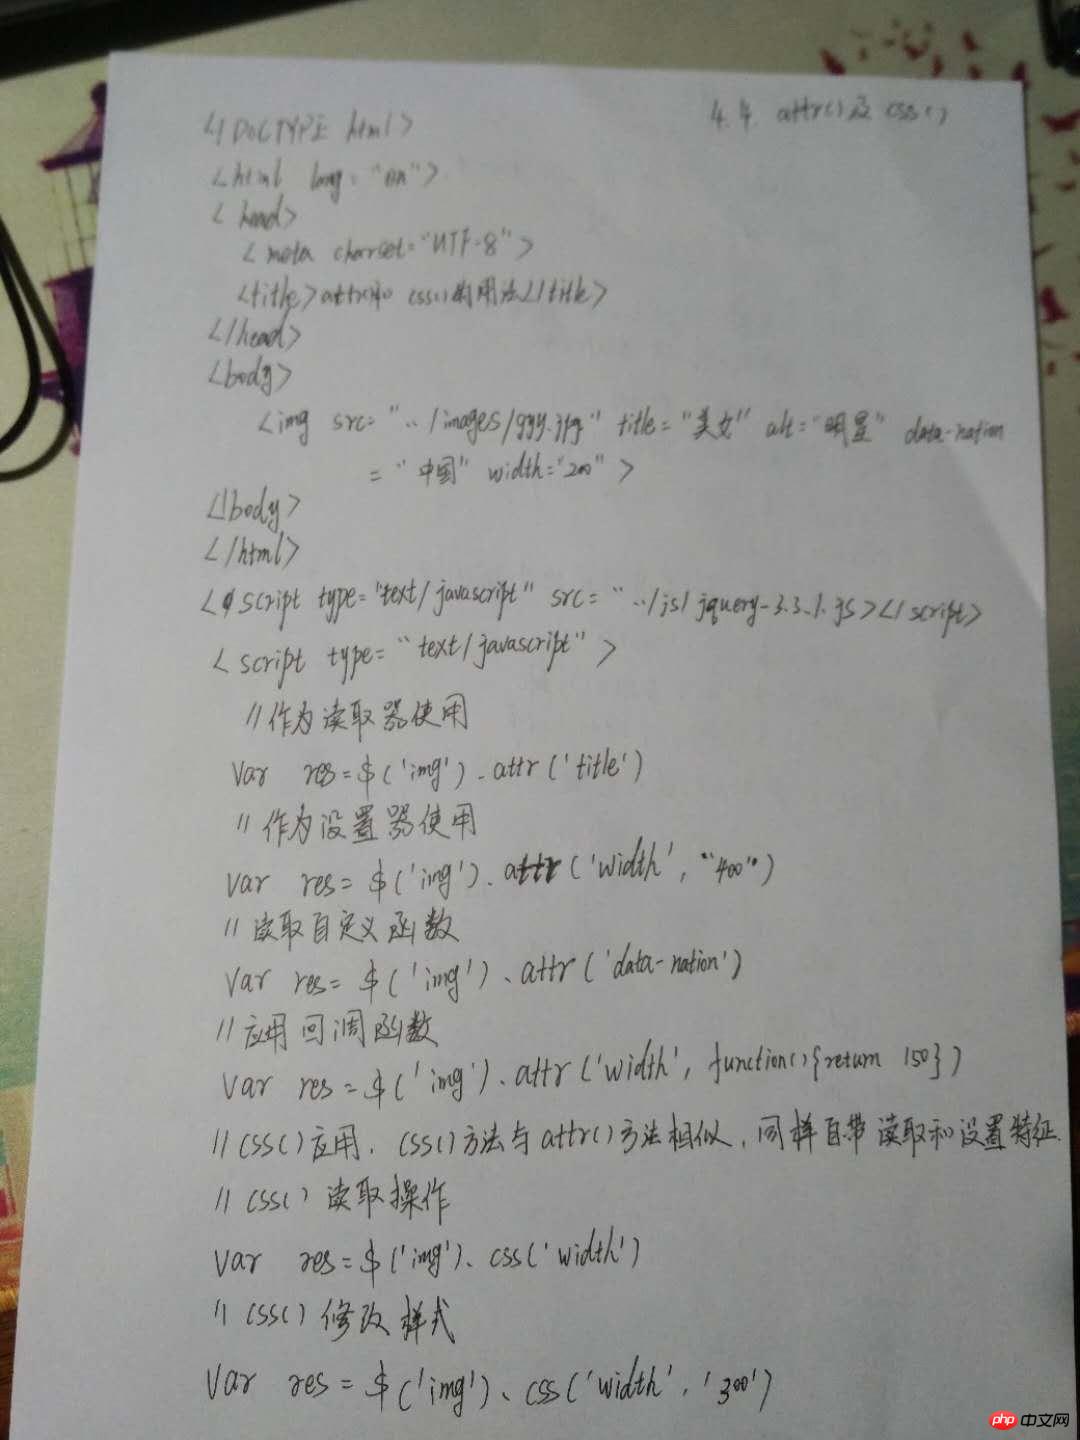 4.4. attr()及css()
<!DOCTYPE html>
<html lang="en">
<head>
<meta charset="UTF-8">
<title>attr()和css()的用法</title>
</head>
<body>
<img src="../images/gyy.jpg" title="美女" alt="明星" data-nation
="中国" width="200">
</body>
</html>
<script type="text/javascript" src="../js/jquery-3.3.1.js></script>
<script type="text/javascript">
//作为读取器使用
var res=$('img').attr('title')
//作为设置器使用
var res=$('img').attr('width',"400")
//读取自定义函数
var res=$('img').attr('data-nation')
//应用回调函数
var res=$('img').attr('width',function(){return 150})
//css()应用，css()方法与attr()方法相似，同样自带读取和设置特征.
//css()读取操作
var res=$('img').css('width')
//css()修改样式
var res=$('img').css('width','300')
php中文网